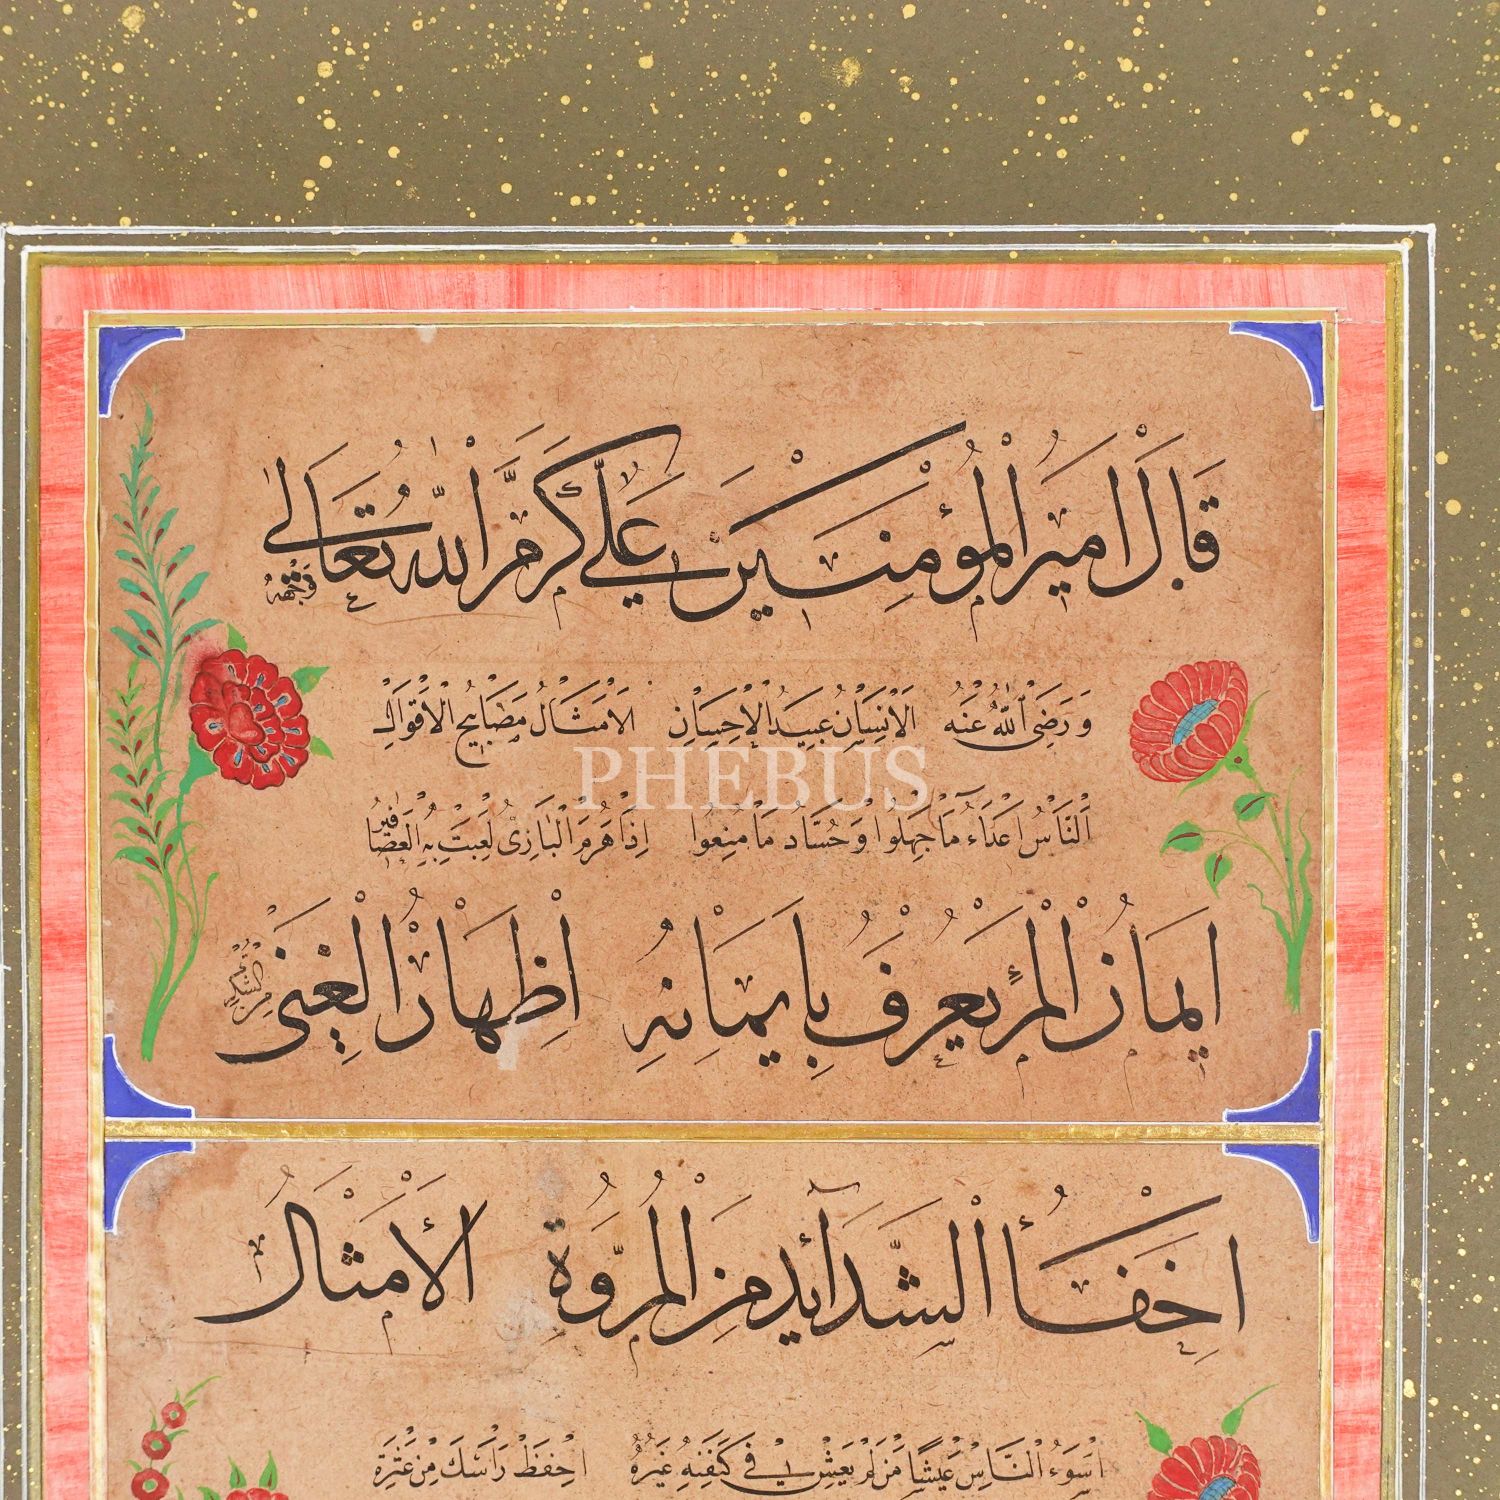 قَالَ اَمِيرُ الْمُؤْمِنِينَ عَلِيٌّ كَرَّمَ اللّٰهُ تَعَالٰى وَجْهَهُ
وَرَضِيَ اللّٰهُ عَنْهُ اَلْاِنْسَانُ عَبِيدُ الْاِحْسَانِ اَلْاَمْثَالُ مَصَابِيحُ الْاَقْوَالِ
PHEBUS
اَلنَّاسُ اَعْدَاءُ مَا جَهِلُوا وَحُسَّادُ مَا مُنِعُوا اِذَا هَرِمَ الْبَازِيُّ لَعِبَتْ بِهِ الْعَصَافِيرُ
اِيمَانُ الْمَرْءِ يُعْرَفُ بِاَيْمَانِهِ اِظْهَارُ الْغِنٰى مِنَ الشُّكْرِ
اِخْفَاءُ الشَّدَائِدِ مِنَ الْمُرُوَّةِ اَلْاَمْثَالُ
اَسْوَءُ النَّاسِ عَيْشًا مَنْ لَمْ يَعِشْ فِي كَنَفِهِ غَيْرُهُ اِحْفَظْ رَأْسَكَ مِنْ عَثْرَةِ